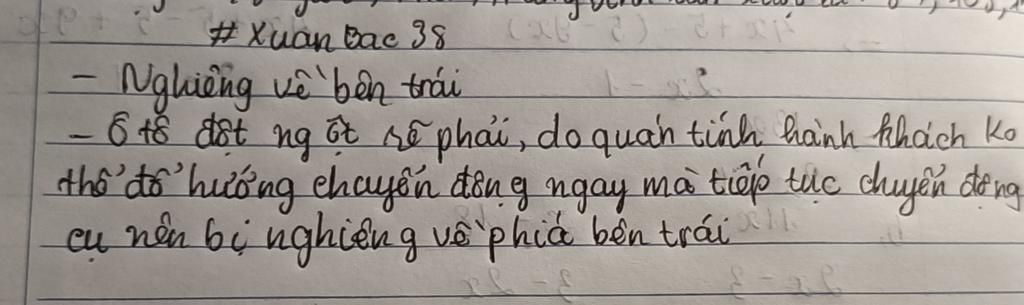 # Xuân Bac 38
- Nghiêng về bên trái
- Ô tô đột ngột rẽ phải, do quán tính hành khách ko
thể đổ hướng chuyển động ngay mà tiếp tục chuyển động
cụ nên bị nghiêng về phía bên trái